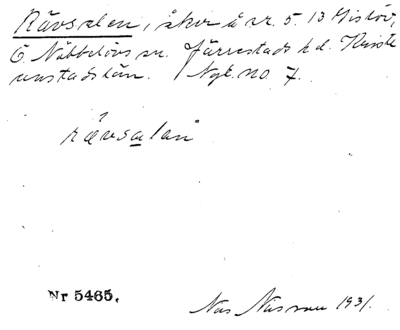 Rävsalen, åker å nr. 5. 13 Mislöv,
Ö Nöbbelövs sn. Järrestads hd. Kristi
anstads län. Ngt. no 7.
rävsalan
Nr 5465.
Nils Nilsson 1931.